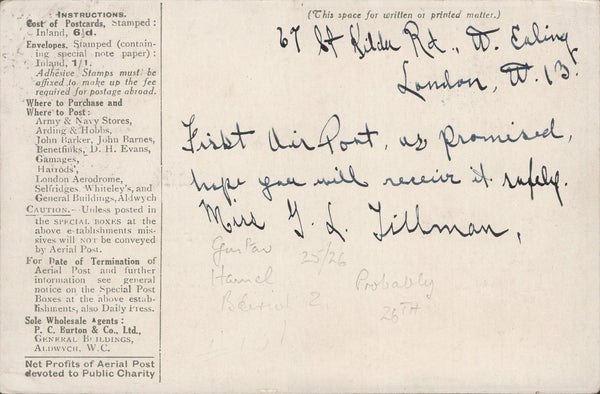 INSTRUCTIONS.
Cost of Postcards, Stamped :
Inland, 6½d.
Envelopes, Stamped (contain-
ing special note paper) :
Inland, 1/1.
Adhesive Stamps must be
affixed to make up the fee
required for postage abroad.
Where to Purchase and
Where to Post :
Army & Navy Stores,
Arding & Hobbs,
John Barker, John Barnes,
Benetfinks, D. H. Evans,
Gamages,
Harrods',
London Aerodrome,
Selfridges, Whiteley's, and
General Buildings, Aldwych
CAUTION.- Unless posted in
the SPECIAL BOXES at the
above establishments mis-
sives will NOT be conveyed
by Aerial Post.
For Date of Termination of
Aerial Post and further
information see general
notice on the Special Post
Boxes at the above estab-
lishments, also Daily Press.
Sole Wholesale Agents :
P. C. Burton & Co., Ltd.,
GENERAL BUILDINGS,
ALDWYCH, W.C.
Net Profits of Aerial Post
devoted to Public Charity
(This space for written or printed matter.)
67 St Kilda Rd., W. Ealing
London, W. 13.
First Air Post, as promised,
hope you will receive it safely.
Miss G. L. Tillman,
Gustav 25/26
Hamel Probably
2 26TH